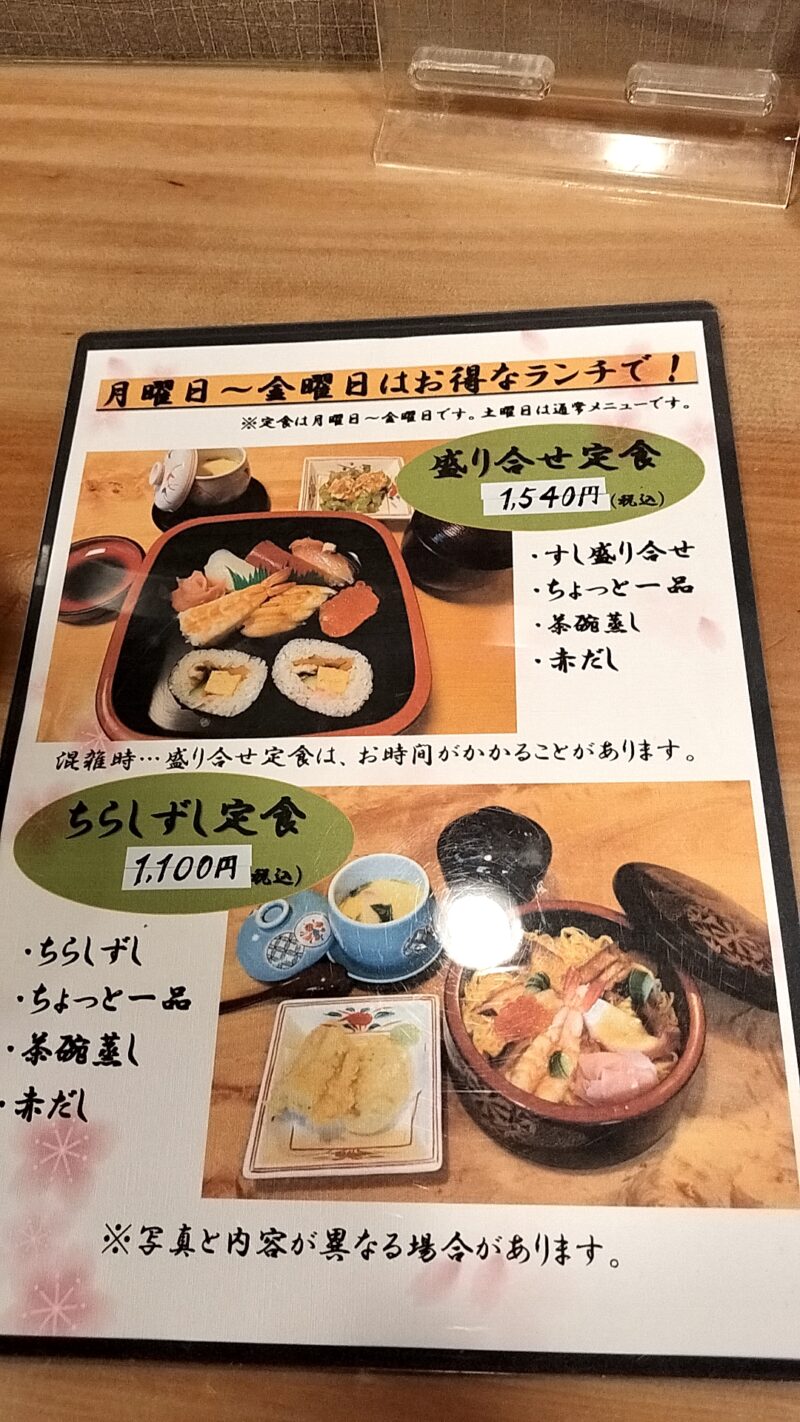 月曜日～金曜日はお得なランチで！
※定食は月曜日～金曜日です。土曜日は通常メニューです。
盛り合せ定食
1,540円(税込)
・すし盛り合せ
・ちょっと一品
・茶碗蒸し
・赤だし
混雑時…盛り合せ定食は、お時間がかかることがあります。
ちらしずし定食
1,100円税込)
・ちらしずし
・ちょっと一品
・茶碗蒸し
・赤だし
※写真と内容が異なる場合があります。